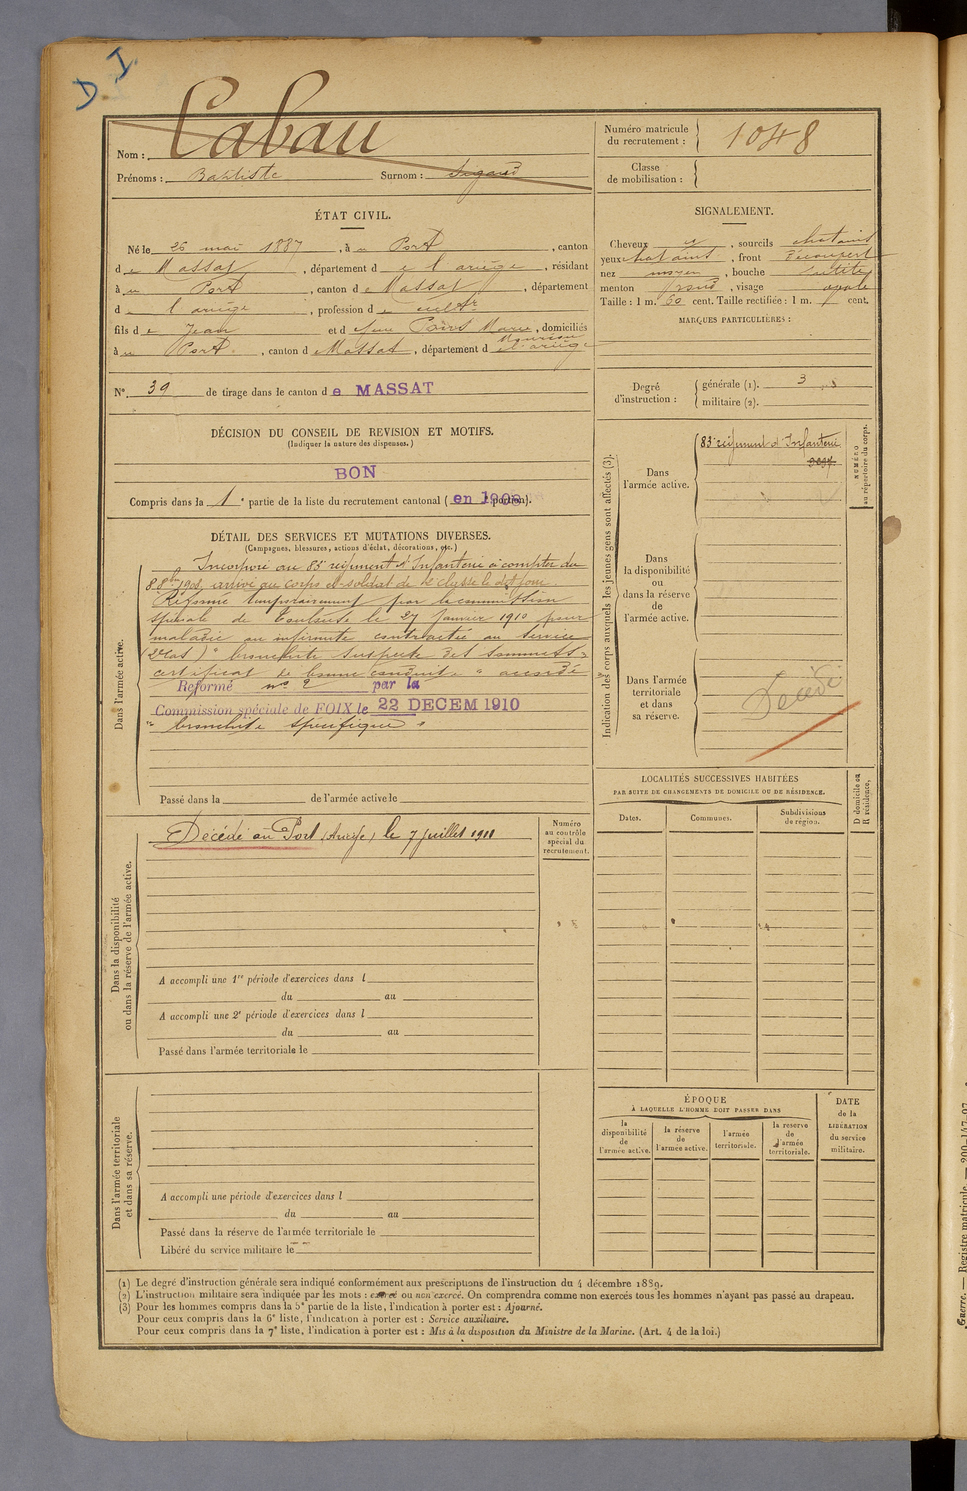 D I
Cabau
Nom :
Prénoms : Baptiste Surnom :
Numéro matricule
du recrutement : 1048
Classe
de mobilisation :
ÉTAT CIVIL.
Né le 26 mai 1887, à u Port, canton
d e Massat, département d e l'ariège, résidant
à u Port, canton d e Massat, département
d e l'ariège, profession de cultr
fils d e Jean et d Marie, domiciliés
à u Port, canton d e Massat, département d e l'ariège
SIGNALEMENT.
Cheveux et, sourcils chatains
yeux chatains, front découvert
nez moyen, bouche petite
menton rond, visage ovale
Taille : 1 m. 60 cent. Taille rectifiée : 1 m. cent.
MARQUES PARTICULIÈRES :
No. 39 de tirage dans le canton d e MASSAT
Degré
d'instruction :
générale (1). 3
militaire (2).
DÉCISION DU CONSEIL DE REVISION ET MOTIFS.
(Indiquer la nature des dispenses.)
BON
Compris dans la 1e partie de la liste du recrutement cantonal ( en 1908 portion).
DÉTAIL DES SERVICES ET MUTATIONS DIVERSES.
(Campagnes, blessures, actions d'éclat, décorations, etc.)
Dans l'armée active.
Incorporé au 83e régiment d'Infanterie à compter du
8 8bre 1908, arrivé au corps et soldat de 2e classe le dit jour
Réformé temporairement par la commission
spéciale de Toulouse le 27 janvier 1910 pour
maladie ou infirmité contractée au service
(2e cas) " bronchite suspecte des sommets "
certificat de bonne conduite " accordé "
Réformé no 2 par la
Commission spéciale de FOIX le 22 DECEM 1910
" bronchite spécifique "
Passé dans la de l'armée active le
Indication des corps auxquels les jeunes gens sont affectés (3).
NUMÉRO
au répertoire du corps.
Dans
l'armée active.
83e régiment d'Infanterie
Dans
la disponibilité
ou
dans la réserve
de
l'armée active.
Dans l'armée
territoriale
et dans
sa réserve.
Décédé
LOCALITÉS SUCCESSIVES HABITÉES
PAR SUITE DE CHANGEMENTS DE DOMICILE OU DE RÉSIDENCE.
Dates. Communes. Subdivisions
de région.
D domicile ou
R résidence.
Dans la disponibilité
ou dans la réserve de l'armée active.
Décédé au Port (Ariège) le 7 juillet 1911
Numéro
au contrôle
spécial du
recrutement.
A accompli une 1re période d'exercices dans l
du au
A accompli une 2e période d'exercices dans l
du au
Passé dans l'armée territoriale le
Dans l'armée territoriale
et dans sa réserve.
A accompli une période d'exercices dans l
du au
Passé dans la réserve de l'armée territoriale le
Libéré du service militaire le
ÉPOQUE
À LAQUELLE L'HOMME DOIT PASSER DANS
la
disponibilité
de
l'armée active.
la réserve
de
l'armée active.
l'armée
territoriale.
la réserve
de
l'armée
territoriale.
DATE
de la
LIBÉRATION
du service
militaire.
(1) Le degré d'instruction générale sera indiqué conformément aux prescriptions de l'instruction du 4 décembre 1889.
(2) L'instruction militaire sera indiquée par les mots : exercé ou non exercé. On comprendra comme non exercés tous les hommes n'ayant pas passé au drapeau.
(3) Pour les hommes compris dans la 5e partie de la liste, l'indication à porter est : Ajourné.
Pour ceux compris dans la 6e liste, l'indication à porter est : Service auxiliaire.
Pour ceux compris dans la 7e liste, l'indication à porter est : Mis à la disposition du Ministre de la Marine. (Art. 4 de la loi.)
Guerre. — Registre matricule.